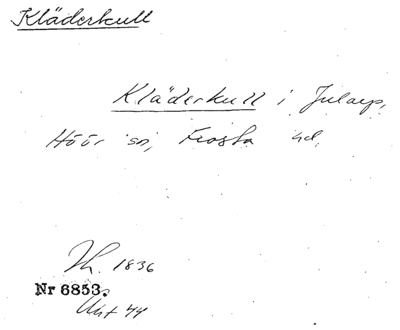 Kläderkull
Kläderkull i Jularp,
Höör sn, Frosta hd.
Th. 1836
Nr 6853.
44